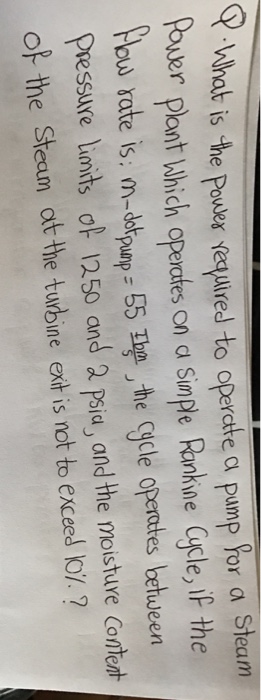 Q. What is the power required to operate a pump for a Steam
Power plant which operates on a simple Rankine Cycle, if the
flow rate is: m-dotpump = 55 Ibm/s, the cycle operates between
pressure limits of 1250 and 2 psia, and the moisture content
of the steam at the turbine exit is not to exceed 10%. ?